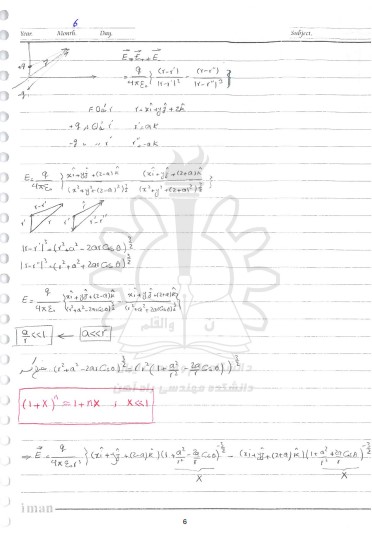 6
Year. Month. Day. Subject.
E⃗ = E⃗₊ + E⃗₋
= q/4πε₀ { (r-r')/|r-r'|³ - (r-r'')/|r-r''|³ }
r = xî + yĵ + zk̂
+q r' = ak
-q r'' = -ak
E = q/4πε₀ { xî+yĵ+(z-a)k̂ / (x²+y²+(z-a)²)^3/2 - (xî+yĵ+(z+a)k̂) / (x²+y²+(z+a)²)^3/2 }
r-r' r' r r-r''
|r-r'|³ = (r²+a²-2ar Cosθ)^3/2
|r-r''|³ = (r²+a²+2ar Cosθ)^3/2
E = q/4πε₀ { xî+yĵ+(z-a)k̂ / (r²+a²-2ar Cosθ)^3/2 - xî+yĵ+(z+a)k̂ / (r²+a²+2ar Cosθ)^3/2 }
a/r <<1 ← a<<r
(r²+a²-2ar Cosθ)^3/2 = (r²(1+a²/r²-2a/r Cosθ))^3/2
ن والقلم
دانشکده مهندسی
(1+x)ⁿ ≃ 1+nx ; x<<1
⇒ E⃗ = q/4πε₀r³ { (xî+yĵ+(z-a)k̂)(1+a²/r²-2a/r Cosθ)^-3/2 - (xî+yĵ+(z+a)k̂)(1+a²/r²+2a/r Cosθ)^-3/2
X X
iman
6